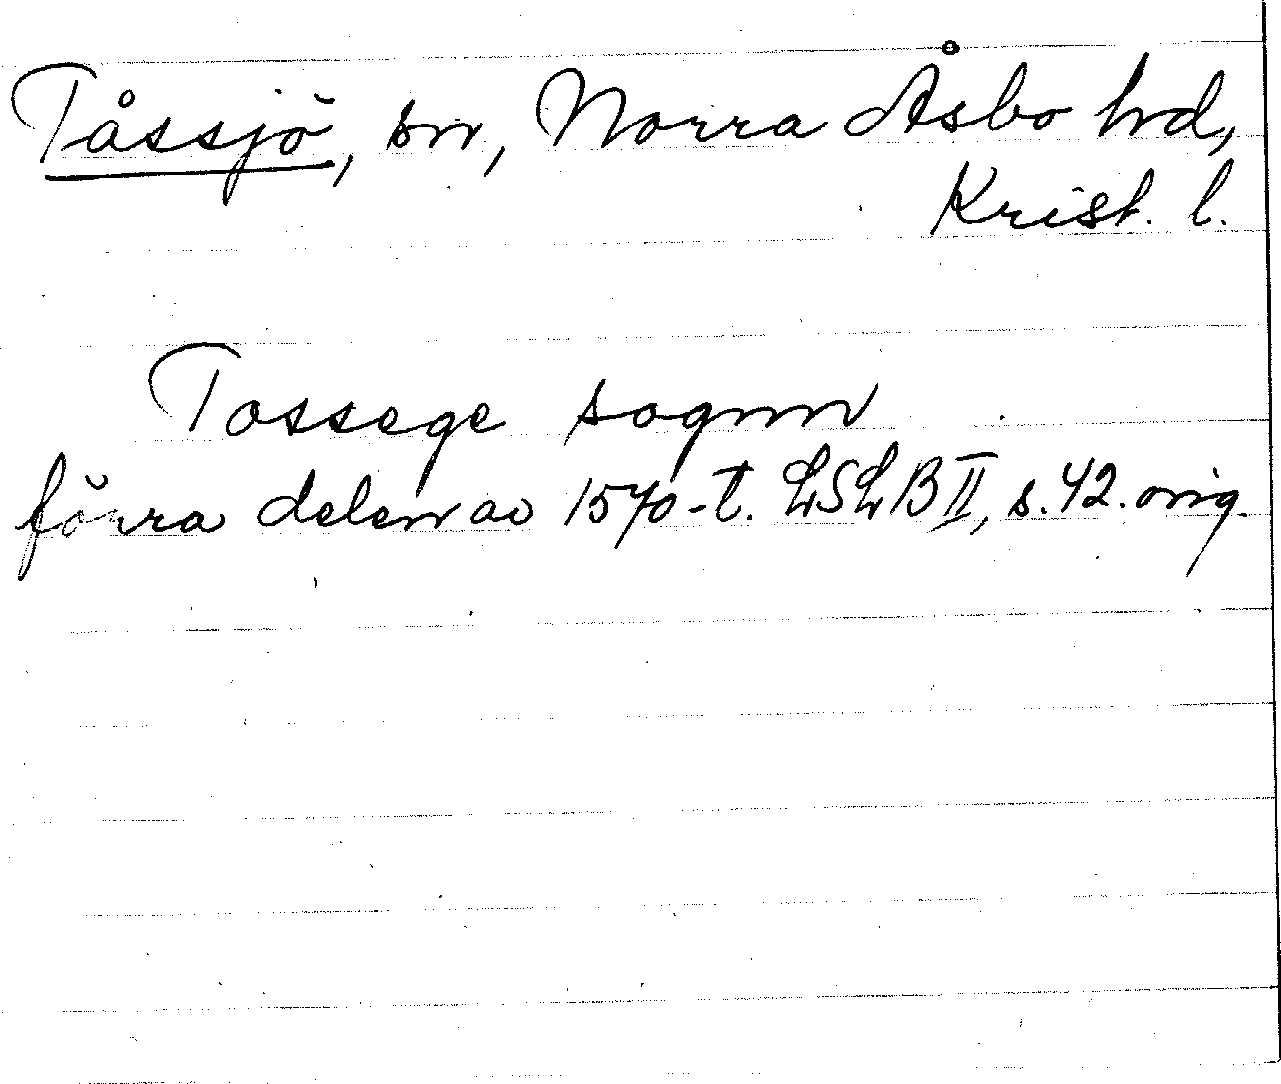 Tåssjö, sn, Norra Åsbo hd,
Krist. l.
Tossege sognn
förra delen av 1570-t. LSLB II, s. 42. orig.